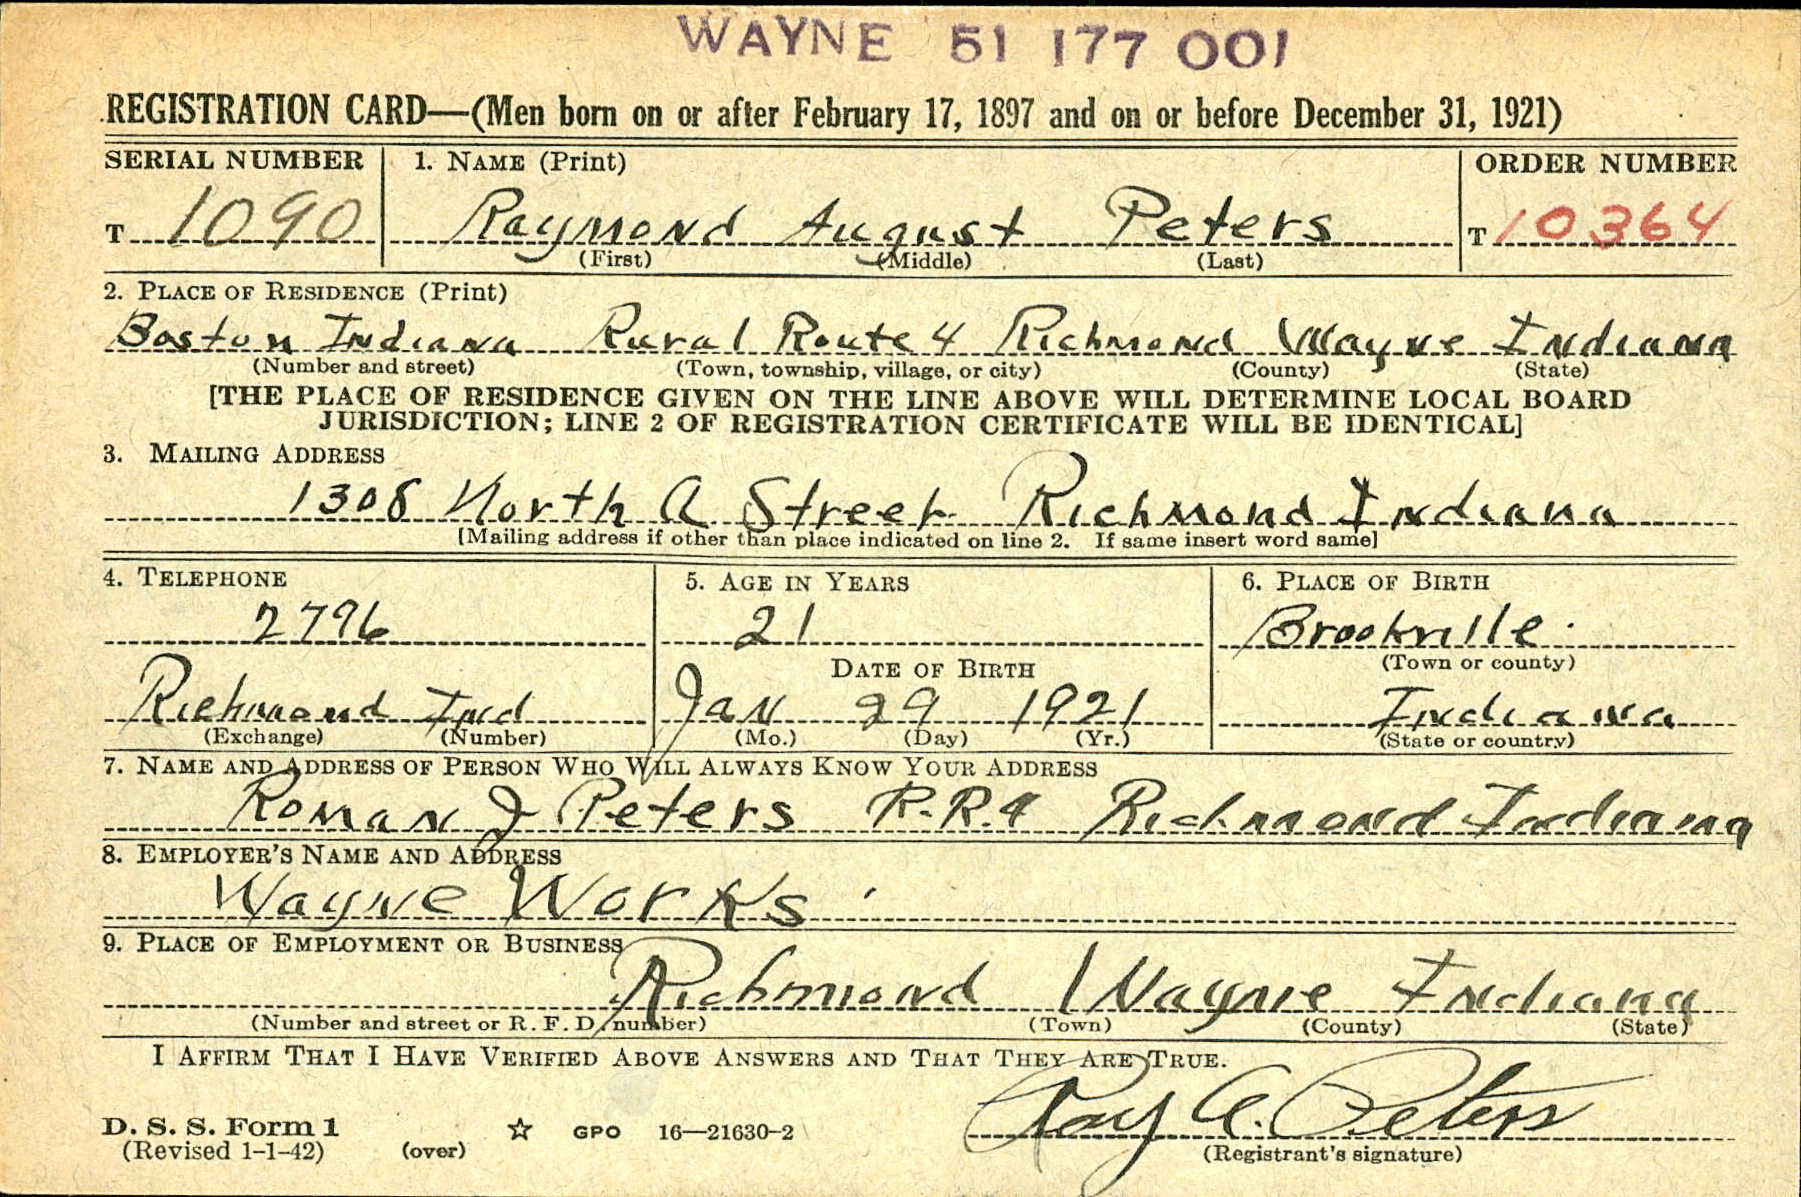 WAYNE 51 177 001
REGISTRATION CARD—(Men born on or after February 17, 1897 and on or before December 31, 1921)
SERIAL NUMBER 1. NAME (Print) ORDER NUMBER
T 1090 Raymond August Peters T 10364
(First) (Middle) (Last)
2. PLACE OF RESIDENCE (Print)
Boston Indiana Rural Route 4 Richmond Wayne Indiana
(Number and street) (Town, township, village, or city) (County) (State)
[THE PLACE OF RESIDENCE GIVEN ON THE LINE ABOVE WILL DETERMINE LOCAL BOARD
JURISDICTION; LINE 2 OF REGISTRATION CERTIFICATE WILL BE IDENTICAL]
3. MAILING ADDRESS
1308 North A Street Richmond Indiana
[Mailing address if other than place indicated on line 2. If same insert word same]
4. TELEPHONE 5. AGE IN YEARS 6. PLACE OF BIRTH
2796 21 Brookville
DATE OF BIRTH (Town or county)
Richmond Ind Jan 29 1921 Indiana
(Exchange) (Number) (Mo.) (Day) (Yr.) (State or country)
7. NAME AND ADDRESS OF PERSON WHO WILL ALWAYS KNOW YOUR ADDRESS
Roman J Peters R.R.4 Richmond Indiana
8. EMPLOYER'S NAME AND ADDRESS
Wayne Works
9. PLACE OF EMPLOYMENT OR BUSINESS
Richmond Wayne Indiana
(Number and street or R. F. D. number) (Town) (County) (State)
I AFFIRM THAT I HAVE VERIFIED ABOVE ANSWERS AND THAT THEY ARE TRUE.
Ray A. Peters
D. S. S. Form 1 ☆ GPO 16—21630-2
(Revised 1-1-42) (over) (Registrant's signature)